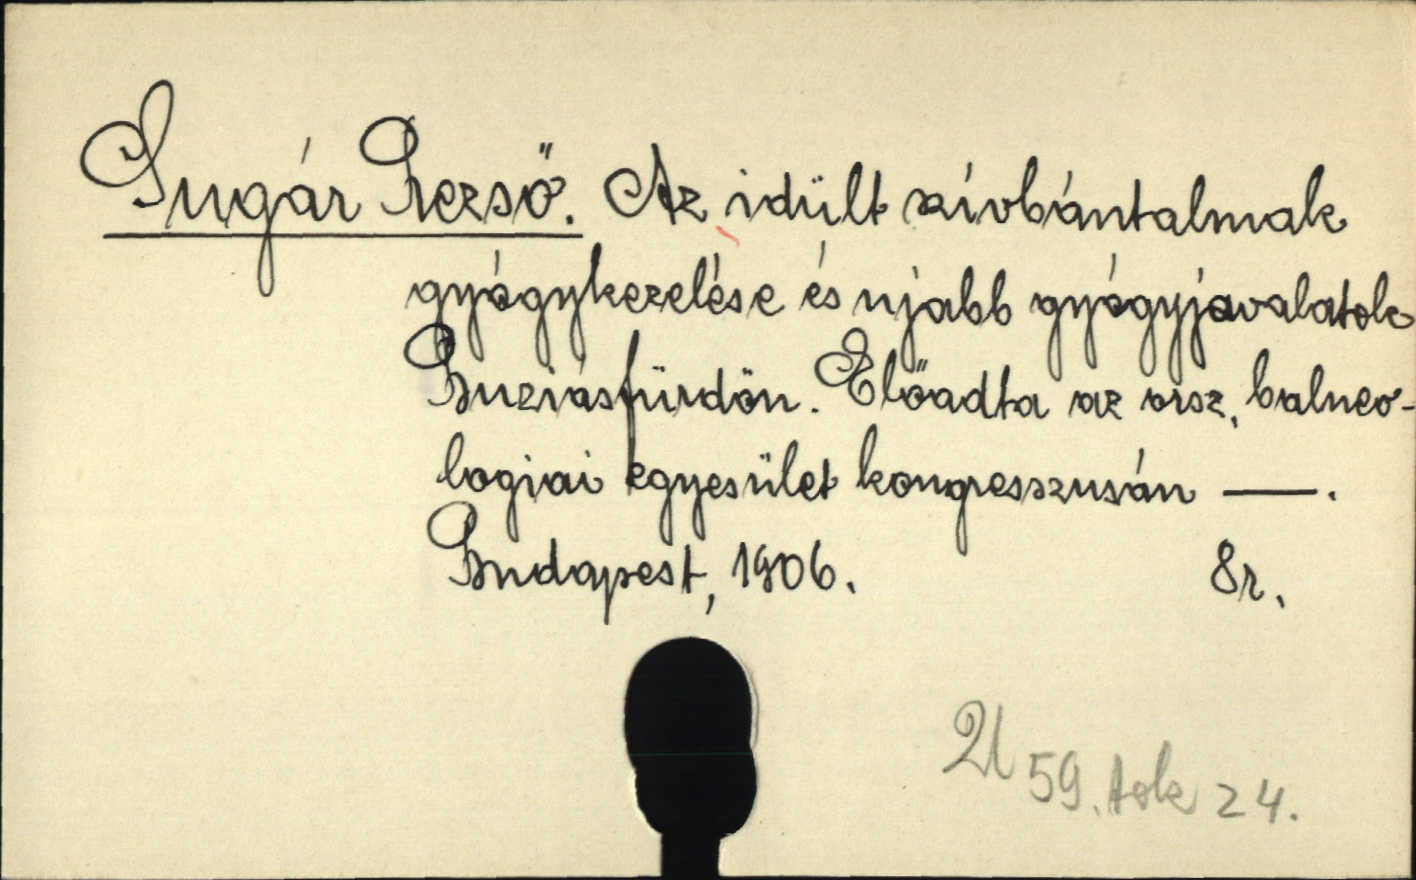 Sugár Rezső. Az idült szívbántalmak
gyógykezelése és ujabb gyógyjavalatok
Buziásfürdőn. Előadta az orsz. balneo-
logiai egyesület kongresszusán —.
Budapest, 1906. 8r.
59. tok 24.